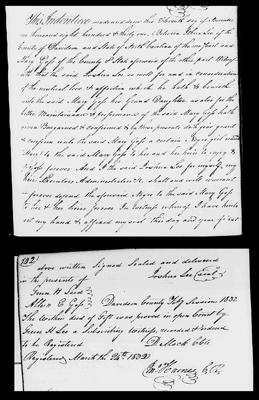 This Indenture made and done this Eleventh day of November
one thousand eight hundred & thirty one, Between Joshua Lee of the
County of Davidson and State of North Carolina of the one part and
Mary Goss of the County & State aforesaid of the other part Witnes-
seth that the said Joshua Lee as well for and in consideration
of the mutual love & affection which he hath &
with the said Mary Goss his Grand Daughter as also for the
better Maintenance & of the said Mary Goss hath
given & confirmed & by these presents doth give grant
& confirm unto the said Mary Goss a certain Negro girl named
to the said Mary Goss to her and her heirs to
forever And the said Joshua Lee for myself, my
Heirs Executors Administrators &c shall and will warrant
& forever defend the aforesaid Negro to the said Mary Goss
to her & her heirs forever In Witness whereof I have hereunto
set my hand & affixed my seal this day and year first
(182)
above written Signed Sealed and delivered
in the presents of Joshua Lee (seal)
Green H Lee
Allen E Goss Davidson County Sessions 1832
The within deed of Gift was proved in open Court by
Green H Lee a Subscribing Witness, recorded & ordered
to be Registered D Mock Clk
Registered March th 24th 1832